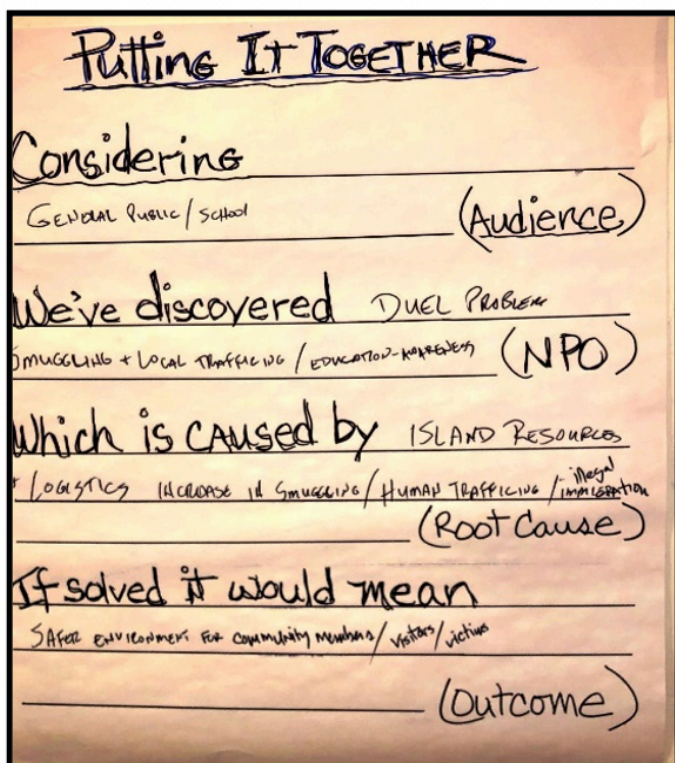 Putting It Together
Considering
General Public / School
(Audience)
We've discovered Duel Problem
Smuggling + Local Trafficing / Education-Awareness (NPO)
Which is caused by Island Resources
+ Logistics Increase in Smuggling / Human Trafficing / illegal immigration
(Root Cause)
If solved it would mean
Safer environment for community members / visitors / victims
(Outcome)